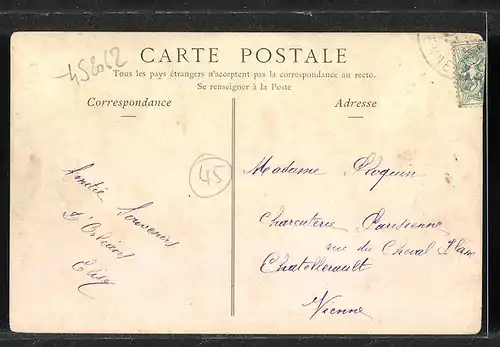 458062
CARTE POSTALE
Tous les pays étrangers n'acceptent pas la correspondance au recto.
Se renseigner à la Poste
Correspondance
Adresse
45
Amitié
Souvenirs
d'Orléans
Madame Ploquin
Charcuterie Parisienne
rue du Cheval Blanc
Chatellerault
Vienne